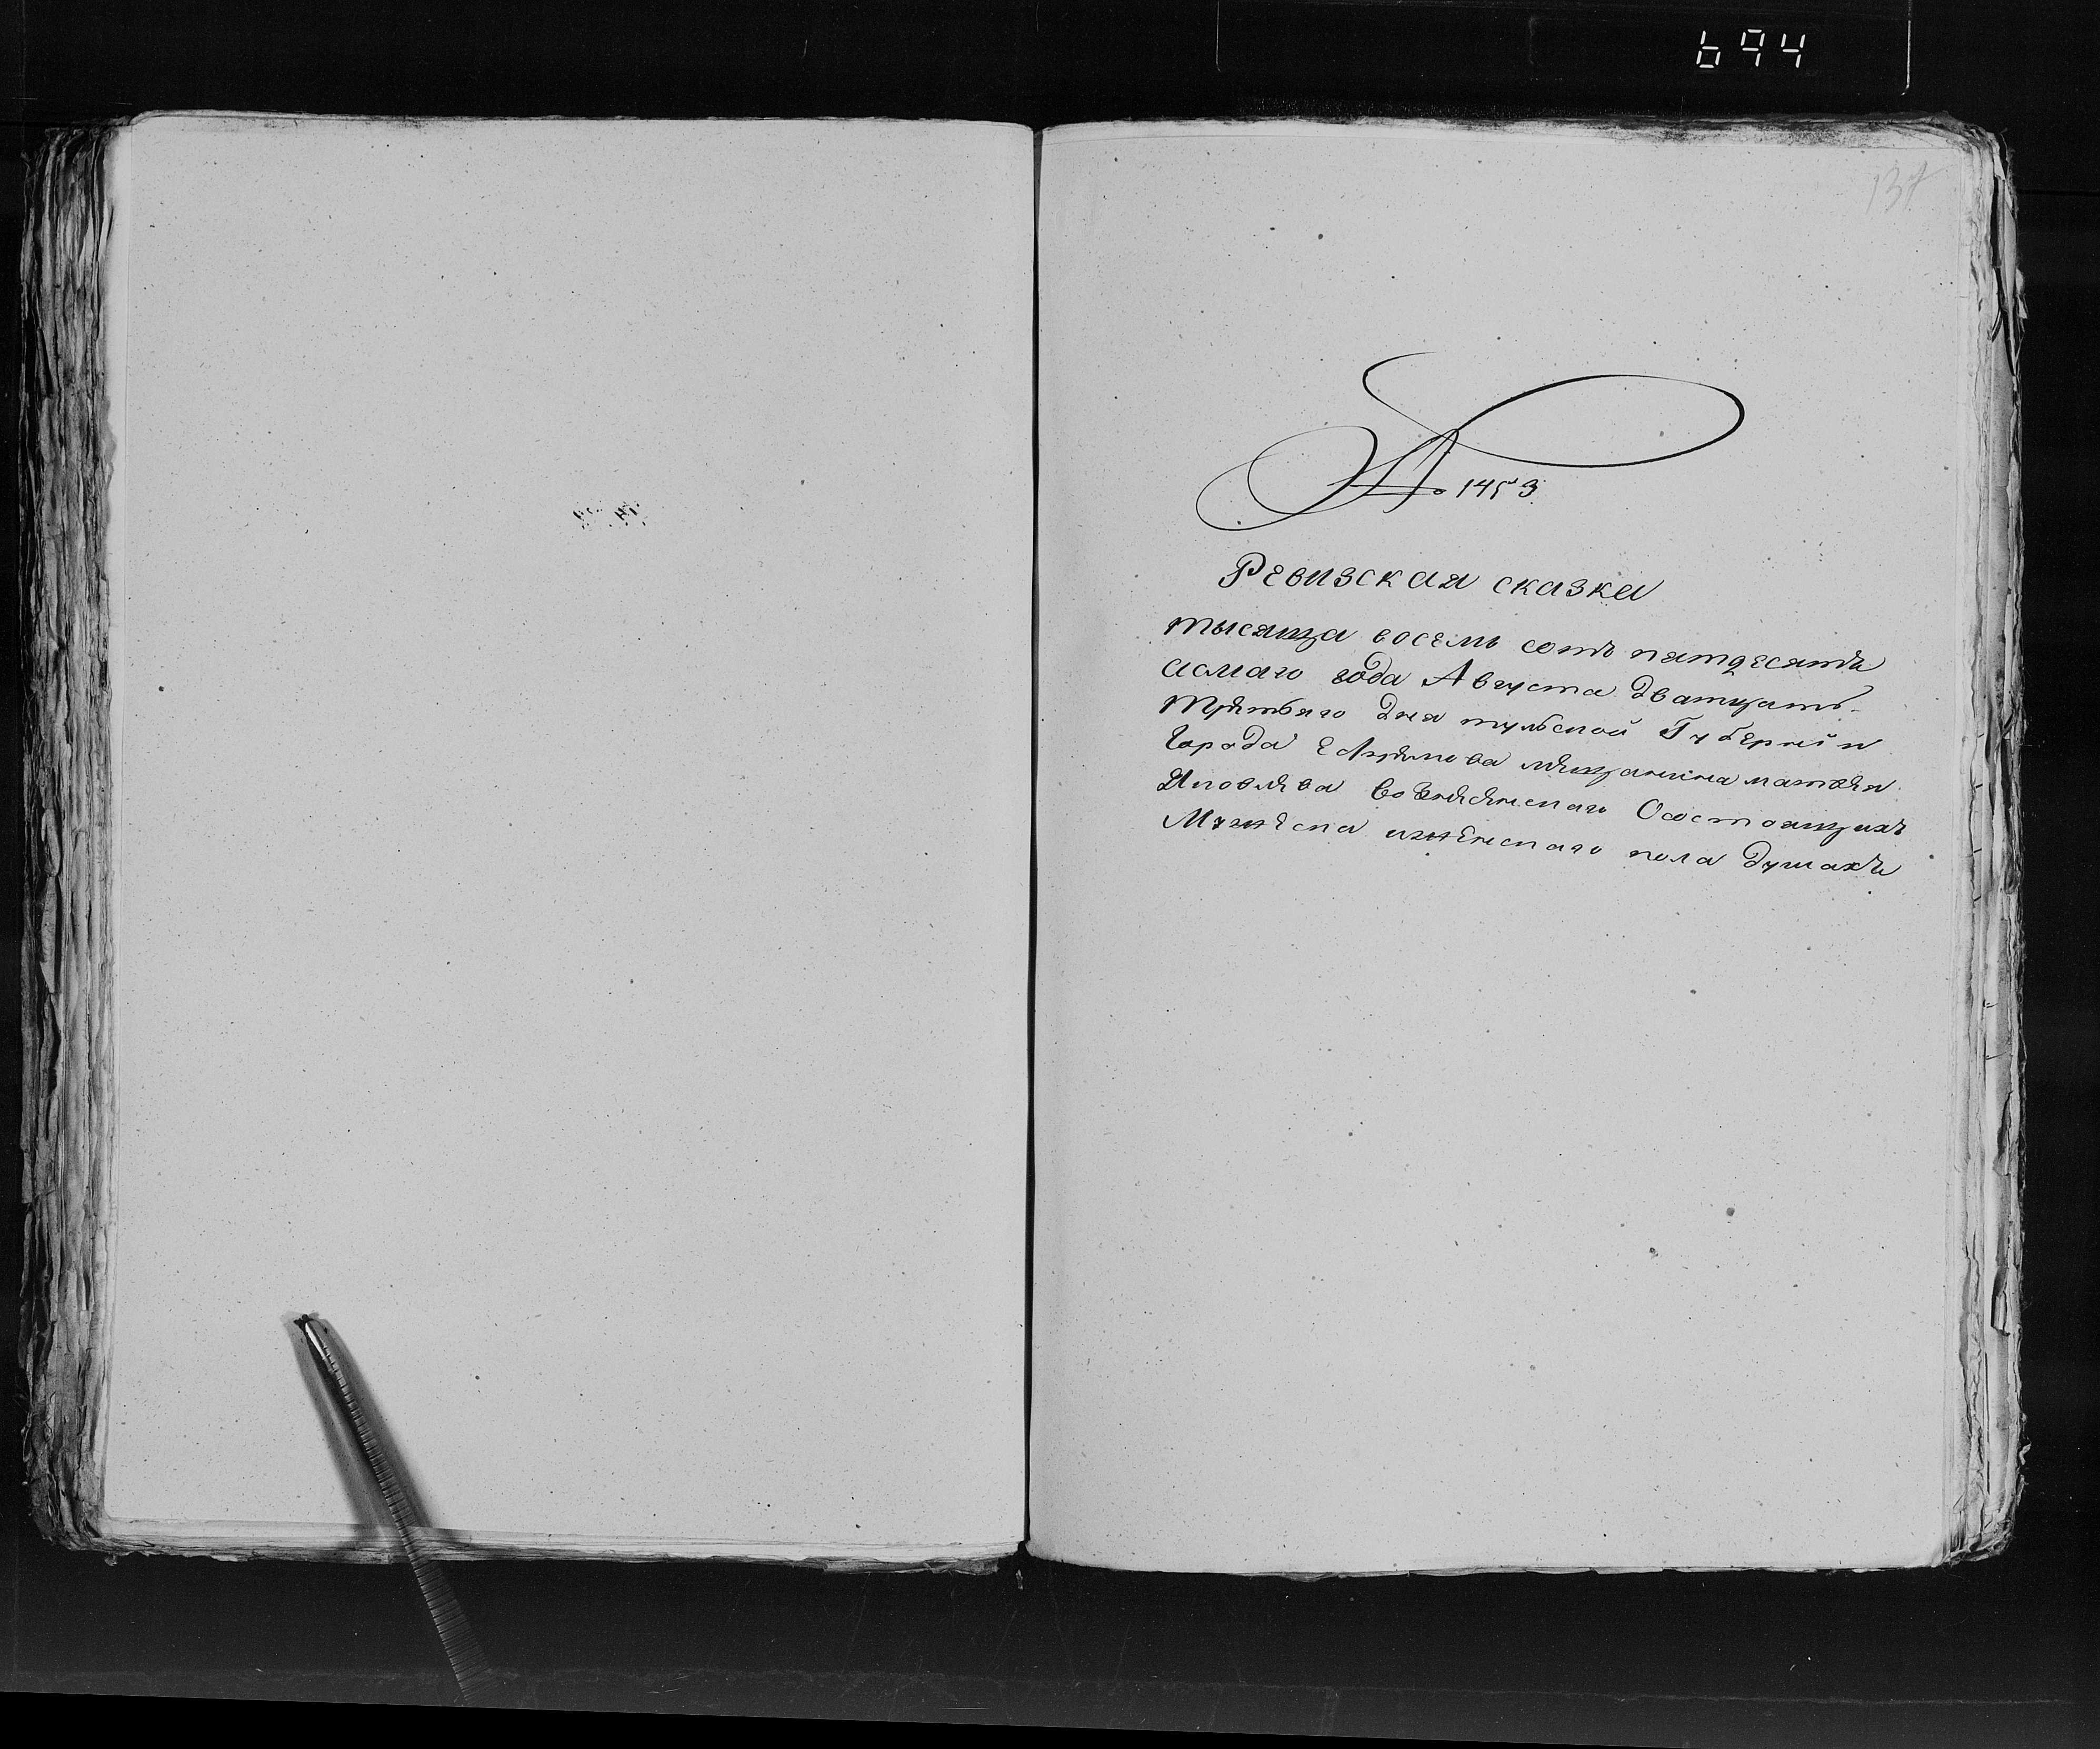 694
137
№ 1453
Ревизская сказка
тысяща восемь сотъ пятдесятъ
асмаго года Августа дватцать
третьяго дня тульской Губернiи
города Ефремова мещанина матвея
Осостоящихъ
Мужеска иженскаго пола душахъ